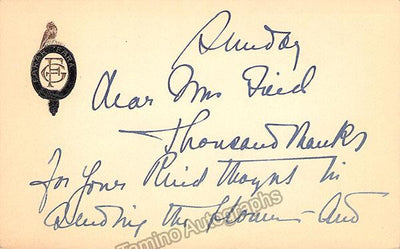 Sunday
Dear Mrs Field
Thousand thanks
for your kind thought in
sending the flowers – and
Tamino Autographs